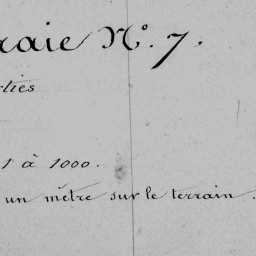 raie N° 7.
rties
1 à 1000.
un mètre sur le terrain.